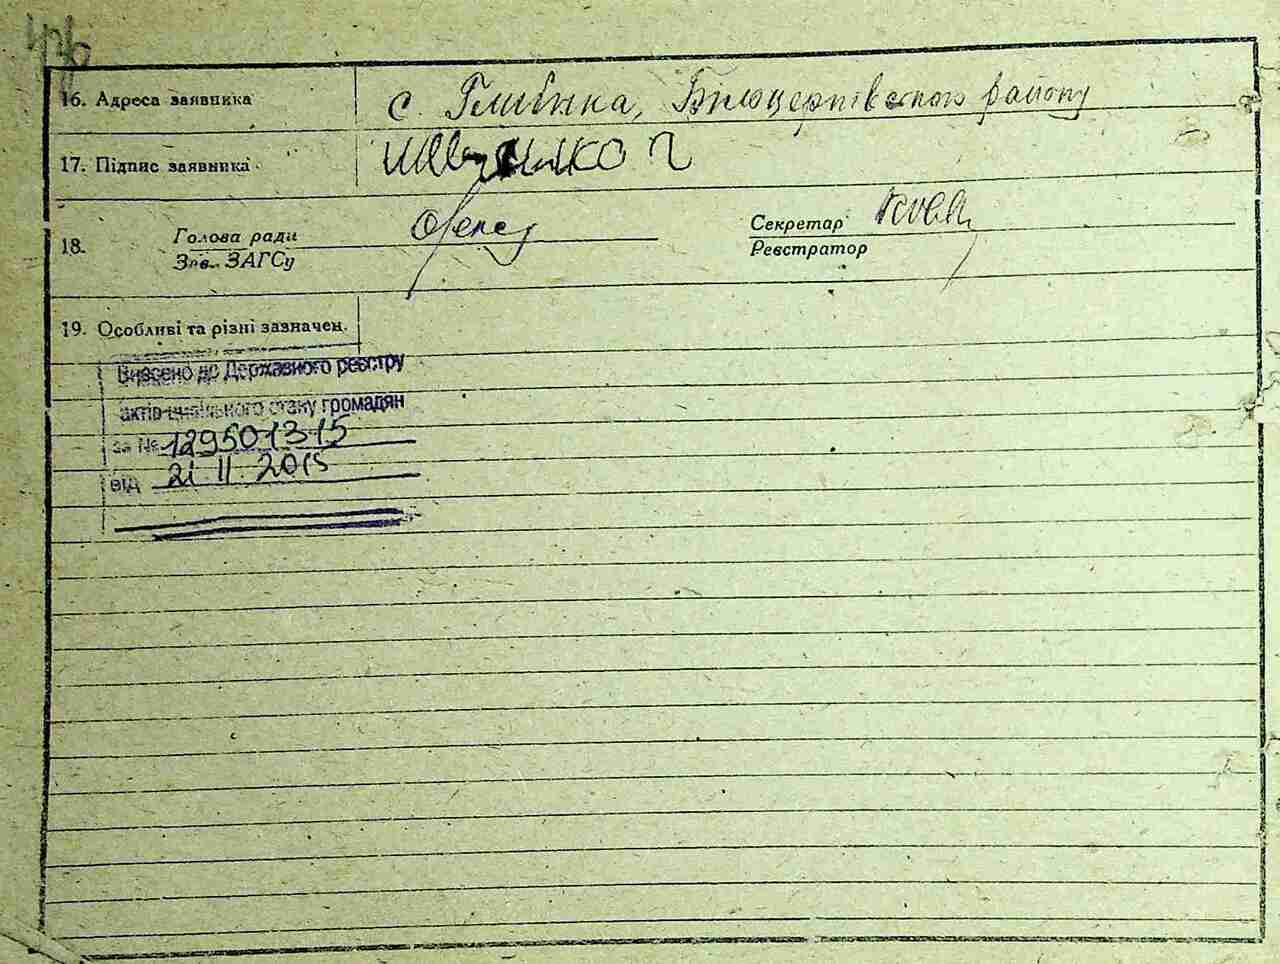 16. Адреса заявника с. Глибінка, Білоцерківського району
17. Підпис заявника
18. Голова ради Секретар
Зав. ЗАГСу Реєстратор
19. Особливі та різні зазначен.
Внесено до Державного реєстру
актів цивільного стану громадян
за № 129501315
від 21.11.2015